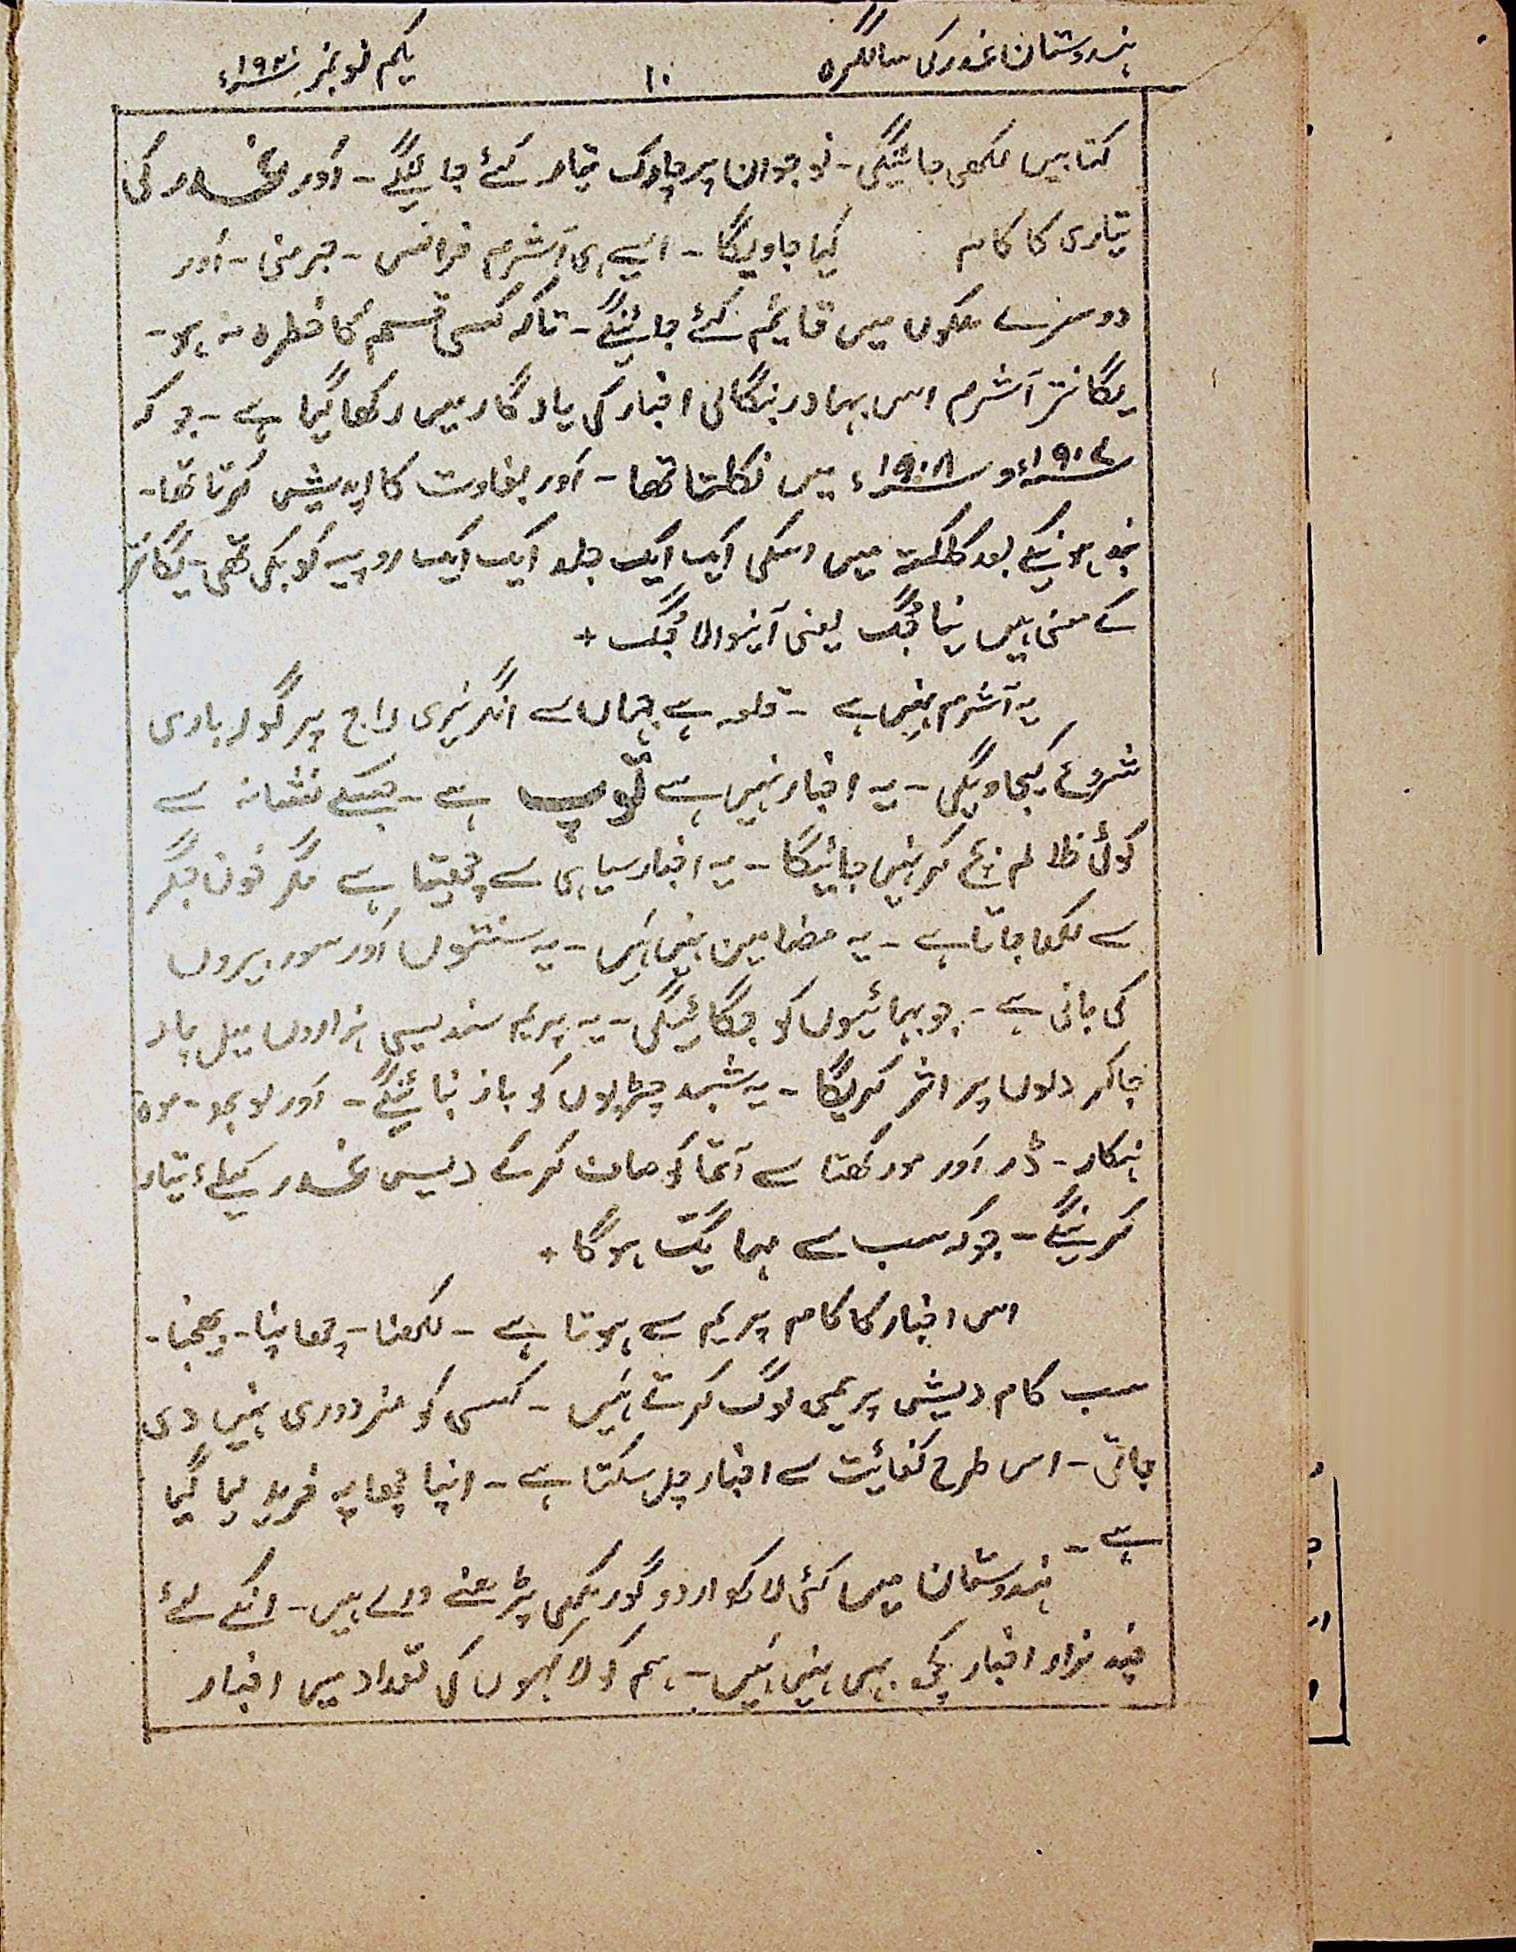 ہندوستان غدر کی سالگرہ ۱۰ یکم نومبر ۱۹۳۰ء
کتابیں لکھی جائینگی ۔ نوجوان پرچارک تیار کئے جائینگے ۔ اَور غدر کی
تیاری کا کام کیا جاویگا ۔ ایسے ہی آشرم فرانس ۔ جرمنی ۔ اَور
دوسرے ملکوں میں قایٔم کئے جائینگے ۔ تاکہ کسی قسم کا خطرہ نہ ہو ۔
یگانتر آشرم اس بہادر بنگالی اخبار کی یادگار میں رکھا گیا ہے ۔ جو کہ
۱۹۰۷ء و ۱۹۰۸ء میں نکلتا تھا ۔ اَور بغاوت کا اپدیش کرتا تھا ۔
بند ہونیکے بعد کلکتہ میں اسکی ایک ایک جلد ایک ایک روپیہ کو بکی تھی ۔ یگانتر
کے معنی ہیں نیا جُگ یعنی آنیوالا جُگ +
یہ آشرم نہیں ہے ۔ قلعہ ہے جہاں سے انگریزی راج پر گولہ باری
شروع کیجاویگی ۔ یہ اخبار نہیں ہے توپ ہے ۔ جسکے نشانہ سے
کوئی ظالم بچ کر نہیں جائیگا ۔ یہ اخبار سیاہی سے چھپتا ہے مگر خون جگر
سے لکھا جاتا ہے ۔ یہ مضامین نہیں ہَیں ۔ یہ سنتوں اَور سوربیروں
کی بانی ہے ۔ جو بھائیوں کو جگائیگی ۔ یہ پریم سندیسی ہزاروں میل پار
جاکر دلوں پر اثر کریگا ۔ یہ شبد چڑیوں کو باز بنائینگے ۔ اَور لوبھ ۔ موہ
ہنکار ۔ ڈر اَور مورکھتا سے آتما کو صاف کرکے دیس غدر کیلئے تیار
کرینگے ۔ جو کہ سب سے مہا یگ ہوگا +
اس اخبار کا کام پریم سے ہوتا ہے ۔ لکھنا ۔ چھاپنا ۔ بھیجنا ۔
سب کام دیش پریمی لوگ کرتے ہَیں ۔ کسی کو مزدوری نہیں دی
جاتی ۔ اس طرح کفائیت سے اخبار چل سکتا ہے ۔ اپنا چھاپہ خرید لیا گیا
ہے ۔
ہندوستان میں کئی لاکھ اردو گورمکھی پڑھنے والے ہیں ۔ انکے لئے
چند ہزار اخبار کچھ بھی نہیں ہَیں ۔ ہم کو لاکہوں کی تعداد میں اخبار